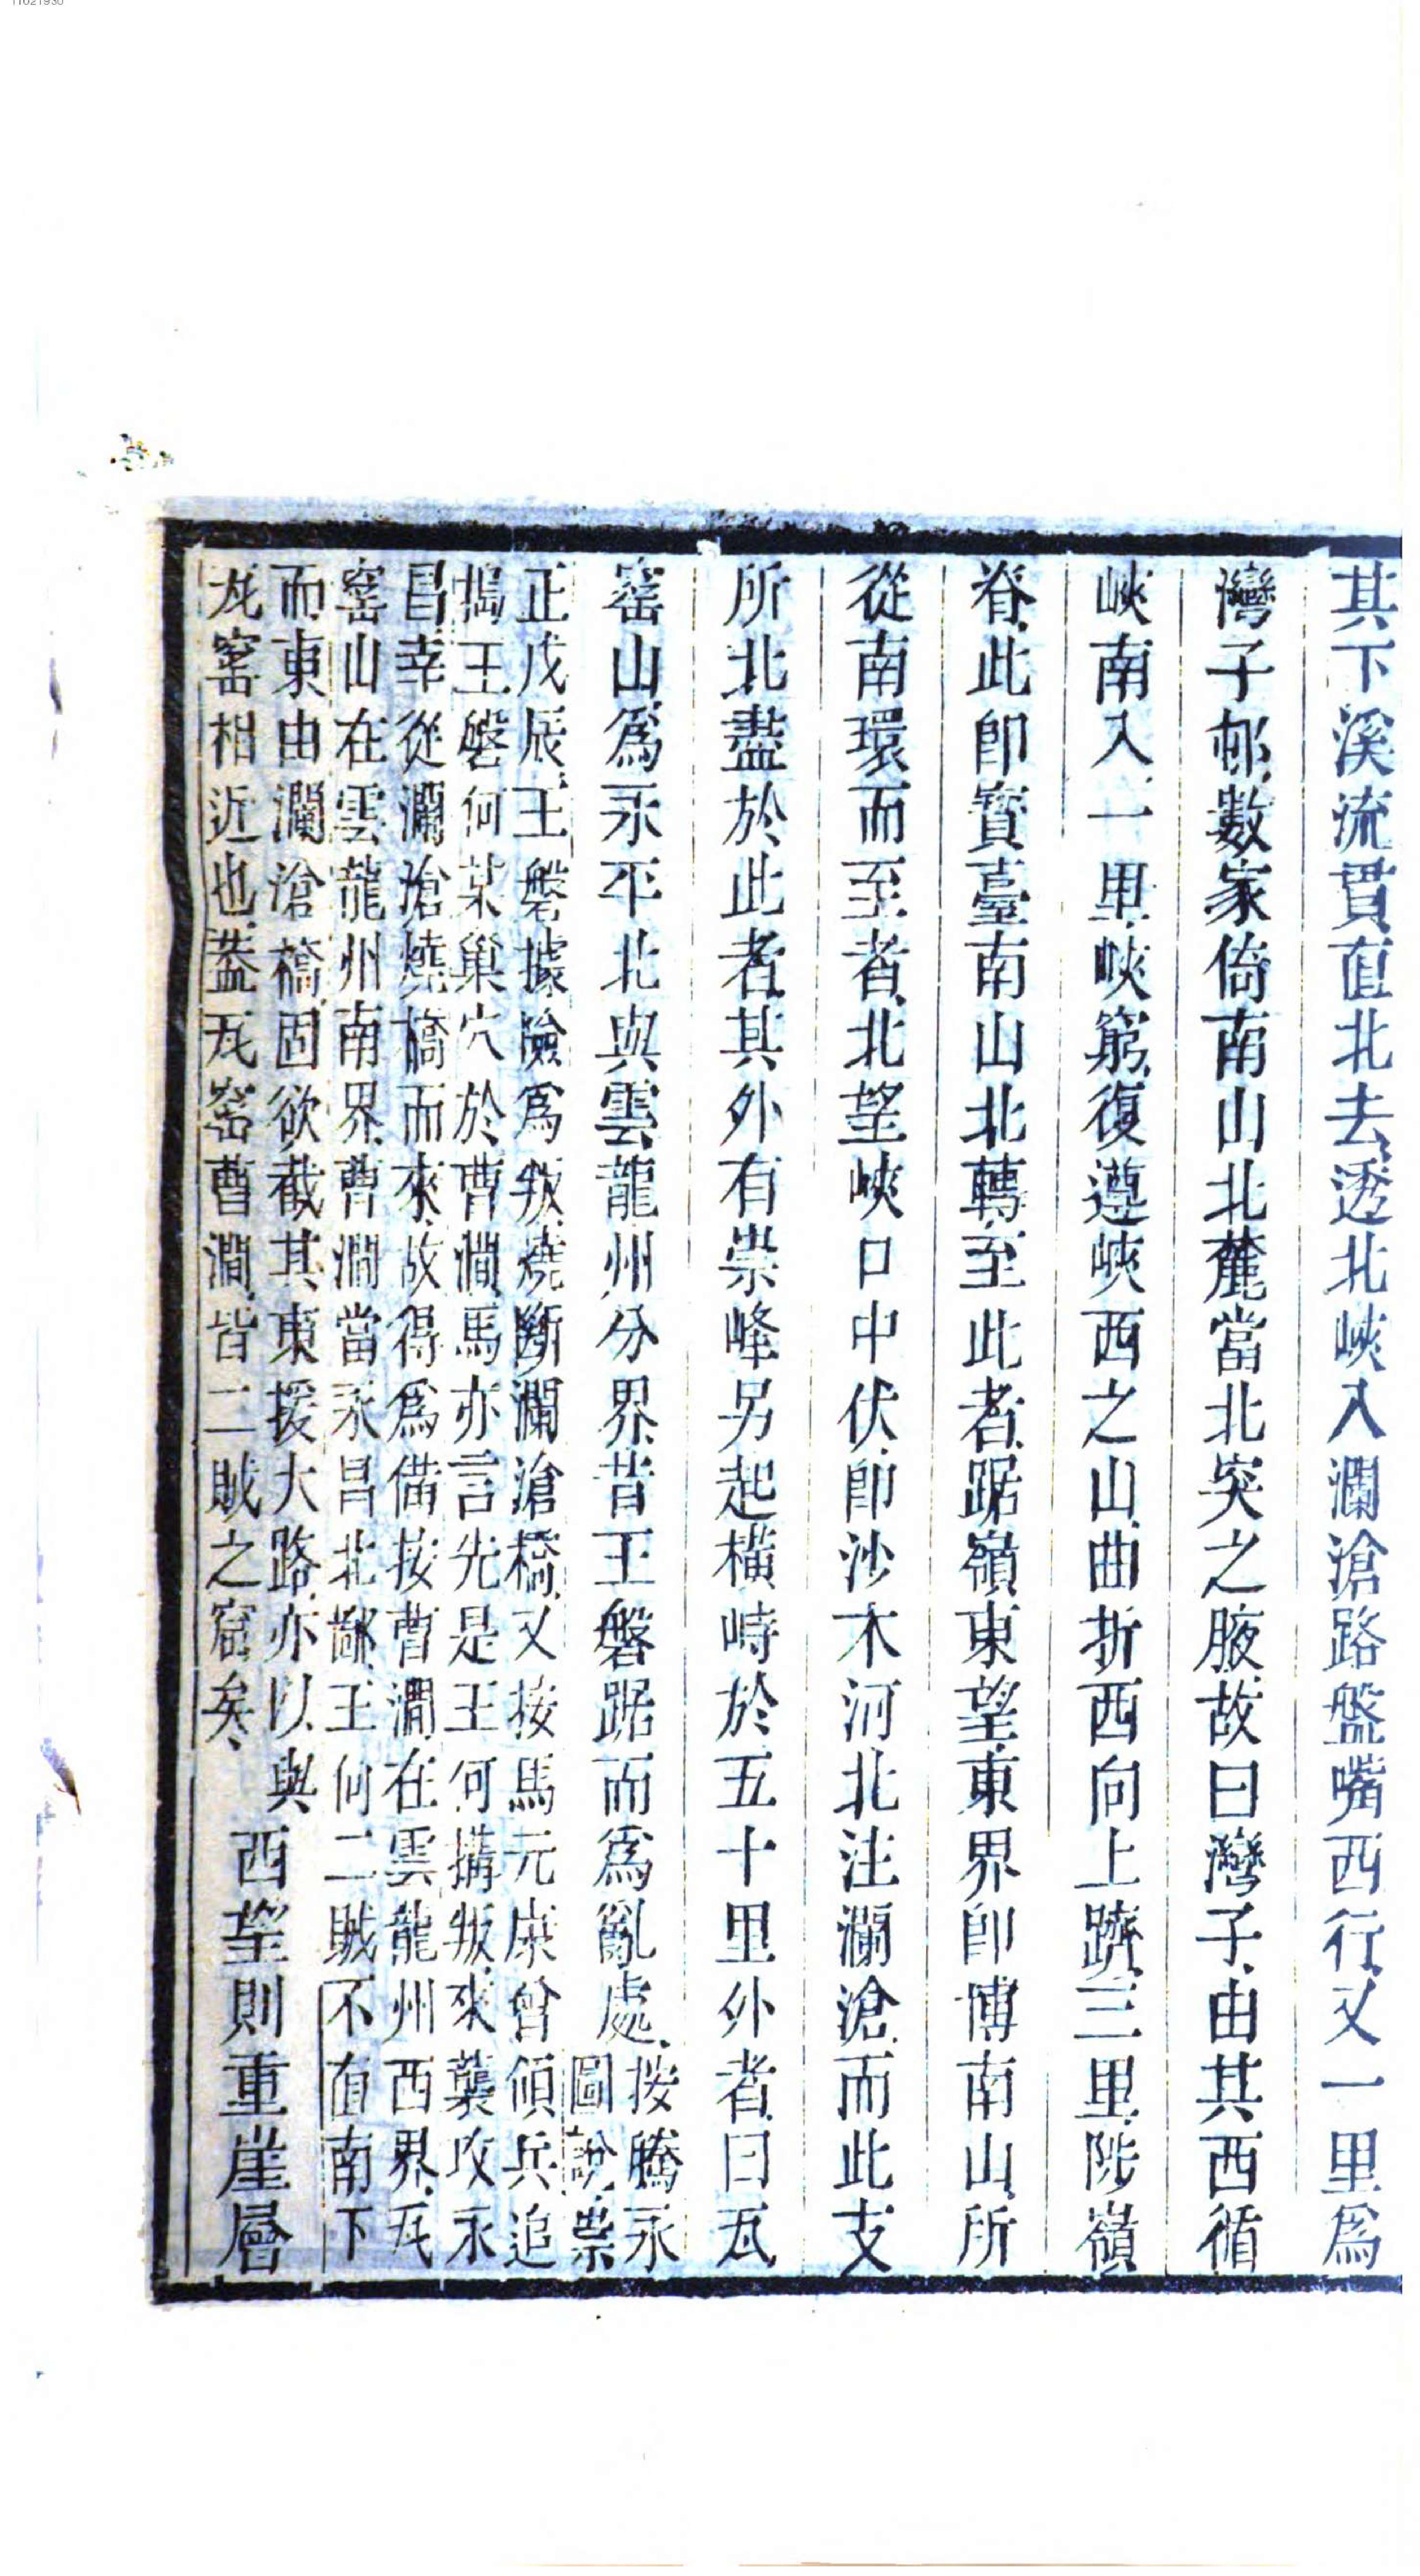 11021930
其下溪流貫直北去透北峽入瀾滄路盤嘴西行又一里爲
灣子邨數家倚南山北麓當北突之腋故曰灣子由其西循
峽南入一里峽窮復遵峽西之山曲折西向上躋三里陟嶺
脊此卽寳臺南山北轉至此者踞嶺東望東界卽博南山所
從南環而至者北望峽口中伏卽沙木河北注瀾滄而此支
所北盡於此者其外有崇峰另起橫峙於五十里外者曰瓦
窰山爲永平北與雲龍州分界昔王磐踞而爲亂處按騰永
圖說崇
正戊辰王磐據險爲叛燒斷瀾滄橋又按馬元康曾傾兵追
搗王磐何某巢穴於曹澗馬亦言先是王何搆叛來襲攻永
昌幸從瀾滄燒橋而來故得爲備按曹澗在雲龍州西界瓦
窰山在雲龍州南界曹澗當永昌北鄙王何二賊不直南下
而東由瀾滄橋固欲截其東援大路亦以與
瓦窰相近也葢瓦窰曹澗皆二賊之窟矣
西望則重崖層